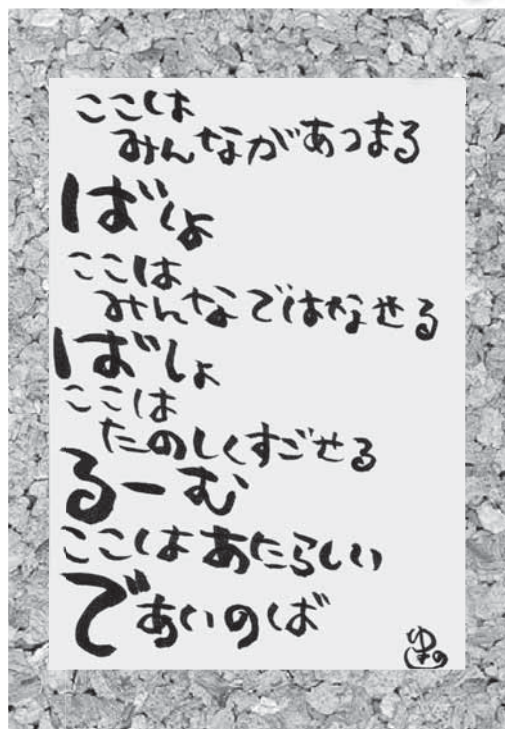 ここは
みんながあつまる
ばしょ
ここは
みんなではなせる
ばしょ
ここは
たのしくすごせる
るーむ
ここはあたらしい
であいのば